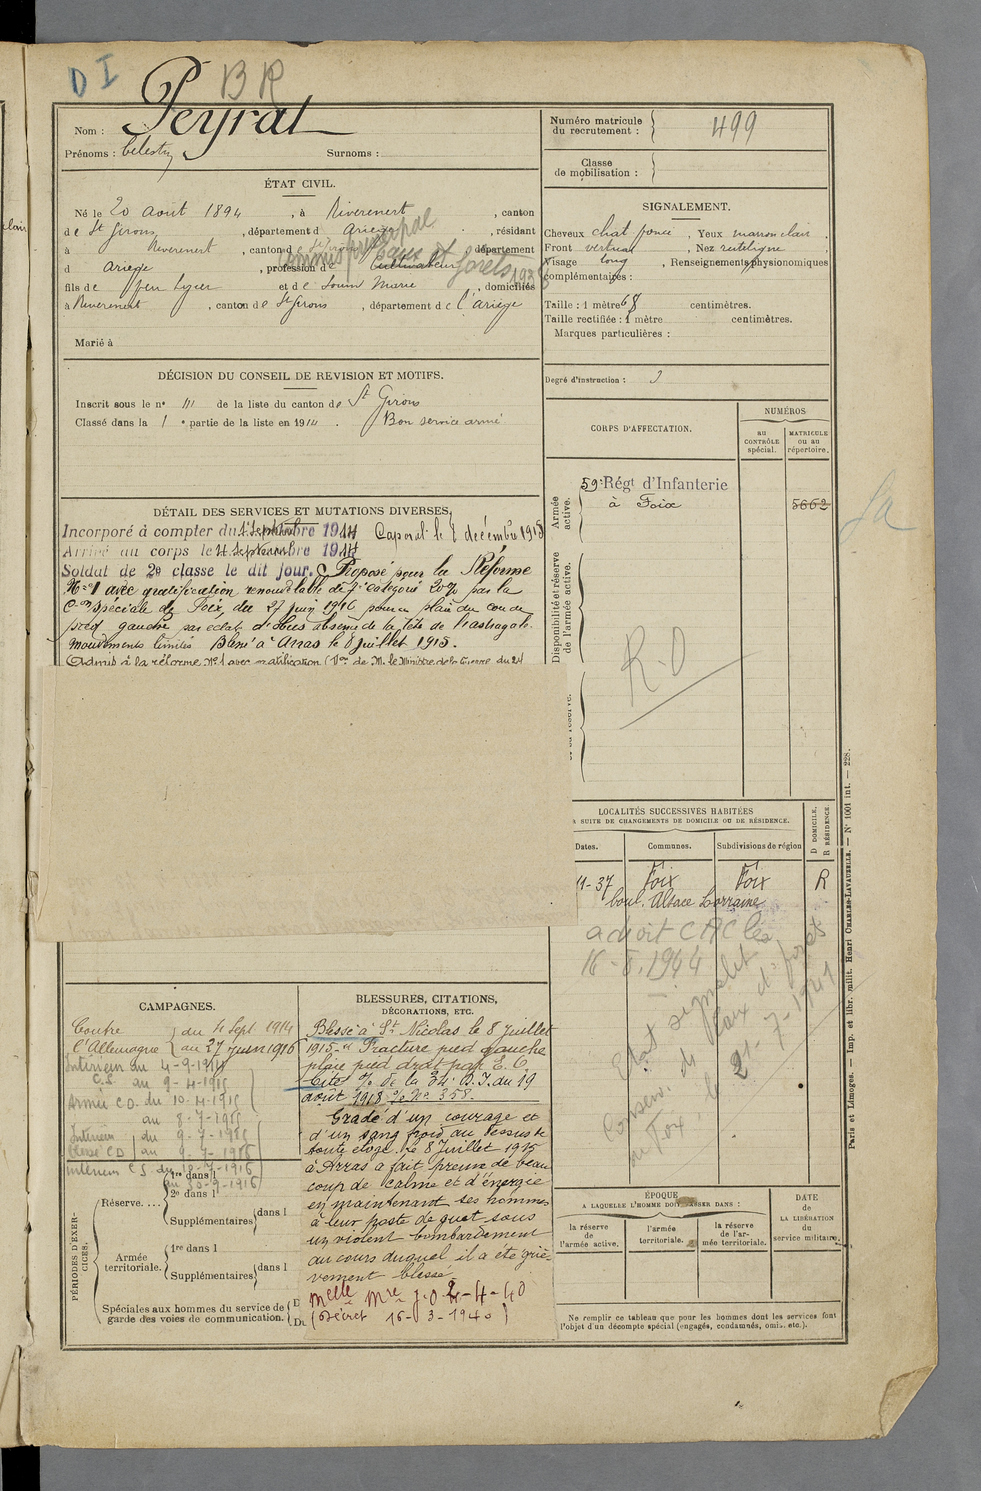 D I
BR
Nom : Peyrat
Prénoms : Celestin Surnoms :
ÉTAT CIVIL.
Né le 20 août 1894, à Riverenert, canton
de St Girons, département d Ariège, résidant
à Riverenert, canton de St Girons, département
d Ariège, profession de Cultivateur
commis principal Eaux et forêts 1936
fils de feu et de Soum Marie, domiciliés
à Riverenert, canton de St Girons, département de l'Ariège
Marié à
DÉCISION DU CONSEIL DE REVISION ET MOTIFS.
Inscrit sous le n° 111 de la liste du canton de St Girons
Classé dans la 1 e partie de la liste en 1914. Bon service armé
DÉTAIL DES SERVICES ET MUTATIONS DIVERSES.
Incorporé à compter du 4 Septembre 1914 Caporal le 8 décembre 1915
Arrivé au corps le 4 septembre 1914
Soldat de 2e classe le dit jour. Proposé pour la Réforme
N° 1 avec gratification renouvelable de 7e catégorie 20% par la
Con spéciale de Foix du 27 juin 1916 pour plaie du cou de
pied gauche par éclat d'obus absence de la tête de l'astragale.
mouvements limités Blessé à Arras le 8 juillet 1915.
Admis à la réforme N° 1 avec gratification (Don de M. le Ministre de la Guerre du 24
Numéro matricule
du recrutement : 499
Classe
de mobilisation :
SIGNALEMENT.
Cheveux chat foncé, Yeux marron clair
Front vertical, Nez rectiligne
Visage long, Renseignements physionomiques
complémentaires :
Taille : 1 mètre 68 centimètres.
Taille rectifiée : 1 mètre centimètres.
Marques particulières :
Degré d'instruction : 3
CORPS D'AFFECTATION.
NUMÉROS
au CONTRÔLE spécial.
MATRICULE ou au répertoire.
Armée active.
59e Régt d'Infanterie
à Foix 5662
Disponibilité et réserve de l'armée active.
R.O
LOCALITÉS SUCCESSIVES HABITÉES
SUITE DE CHANGEMENTS DE DOMICILE OU DE RÉSIDENCE.
Dates. Communes. Subdivisions de région
D DOMICILE, R RÉSIDENCE
11-37 Foix Foix R
boul. Alsace Lorraine
a droit CAC le
16-5.1944
Etat signalét
Conserv. des Eaux et forêts
Foix le 21-7-1941
CAMPAGNES.
Contre du 4 Sept 1914
l'Allemagne au 27 juin 1916
Intérieur du 4-9-1914
C.S. au 9-4-1915
Armée CD. du 10-4-1915
au 8-7-1915
Intérieur du 9-7-1915
blessé CD au 9-7-1916
Intérieur C.S. du 10-7-1916
au 30-9-1916
PÉRIODES D'EXERCICES.
Réserve.... 1re dans l
2e dans l
Supplémentaires dans l
Armée territoriale. 1re dans l
Supplémentaires dans l
Spéciales aux hommes du service de
garde des voies de communication.
BLESSURES, CITATIONS,
DÉCORATIONS, ETC.
Blessé à St Nicolas le 8 juillet
1915 Fracture pied gauche
plaie pied droit par E. O.
Cité O/ de la 34e D.I. du 19
août 1918 N° 358.
Gradé d'un courage et
d'un sang froid au dessus de
toute éloge. Le 8 Juillet 1915
à Arras a fait preuve de beau
coup de calme et d'énergie
en maintenant ses hommes
à leur poste de guet sous
un violent bombardement
au cours duquel il a été griè-
vement blessé
Melle Mre J.O 2-4-40
(Décret 16-3-1940)
ÉPOQUE
A LAQUELLE L'HOMME DOIT PASSER DANS :
la réserve de l'armée active.
l'armée territoriale.
la réserve de l'armée territoriale.
DATE DE LA LIBÉRATION du service militaire.
Ne remplir ce tableau que pour les hommes dont les services font
l'objet d'un décompte spécial (engagés, condamnés, omis, etc.).
Paris et Limoges. — Imp. et libr. milit. Henri CHARLES-LAVAUZELLE. — N° 1001 int. — 228.